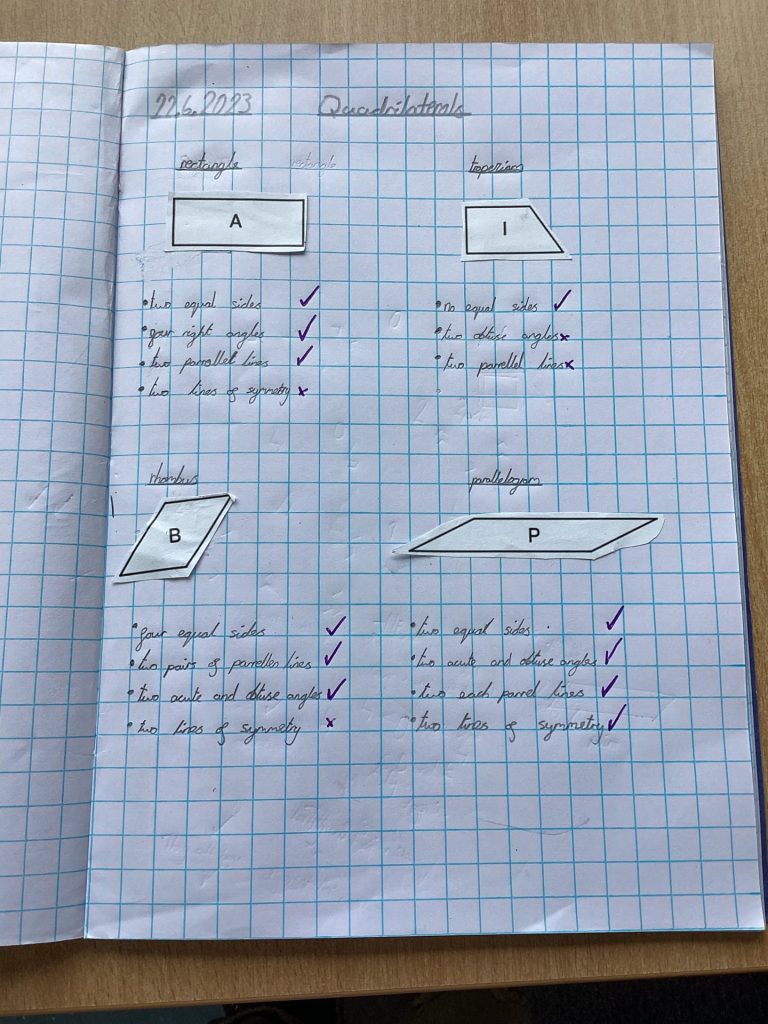 22.6.2023 Quadrilaterals
rectangle rectangle
A
• two equal sides ✓
• four right angles ✓
• two parrallel lines ✓
• two lines of symmetry x
traperium
I
• no equal sides ✓
• two obtuse angles x
• two parrellel lines x
rhombus
B
• four equal sides ✓
• two pairs of parrellen lines ✓
• two acute and obtuse angles ✓
• two lines of symmetry x
parallelogram
P
• two equal sides. ✓
• two acute and obtuse angles ✓
• two each parrel lines ✓
• two lines of symmetry ✓